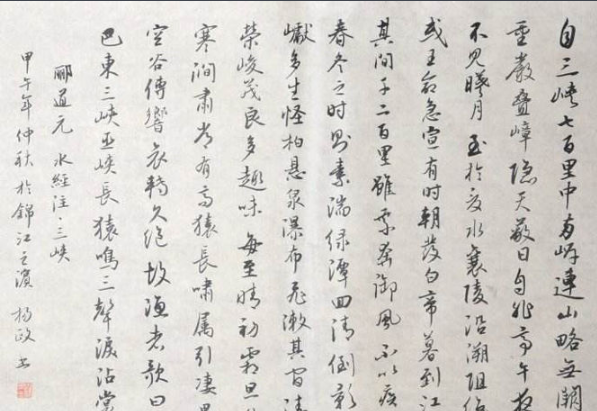 自三峡七百里中两岸連山略無闕
重巖叠嶂隐天蔽日自非亭午夜
不見曦月至於夏水襄陵沿溯阻绝
或王命急宣有时朝發白帝暮到江
其间千二百里雖乘奔御風不以疾
春冬之时则素湍绿潭回清倒影
巘多生怪柏悬泉瀑布飛漱其间清
榮峻茂良多趣味每至晴初霜旦
寒涧肃常有高猿長嘯属引凄異
空谷傳響哀轉久绝故漁者歌曰
巴東三峡巫峡長猿鳴三聲淚沾裳
酈道元 水經注·三峡
甲午年仲秋於錦江之濱 楊政书